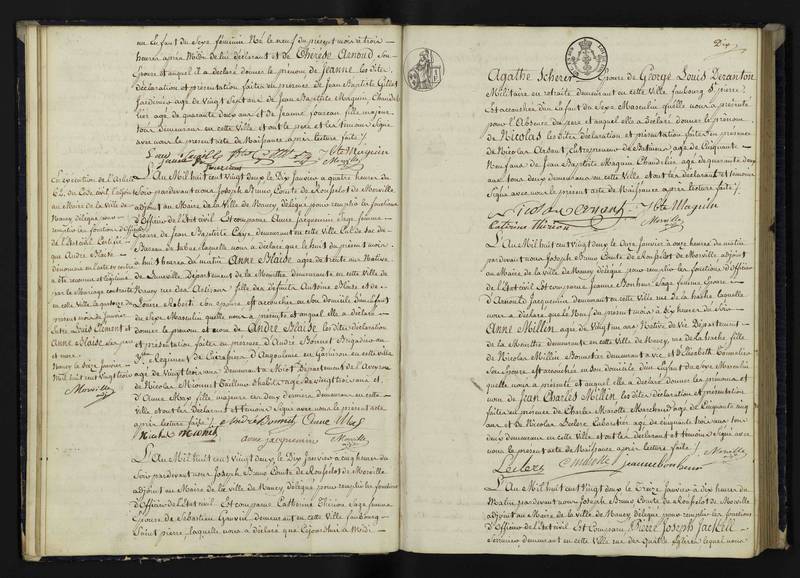 un Enfant du Sexe féminin Né le neuf du présent mois à trois
heures après Midi de lui déclarant et de Thérèse Arnoud, Son
Epouse et auquel il a déclaré donner le prénom de Jeanne les dites
déclaration et présentation faites en présence de Jean Baptiste Gillet
Jardinier agé de Vingt Sept ans de Jean Baptiste Maguin Chandelier
agé de quarante deux ans et de Jeanne fourcau fille majeure
tous demeurant en cette Ville et ont le père et les témoins Signé
avec nous le présent acte de Naissance après lecture faite
Maguin
Morville
L'An Mil huit cent Vingt deux le Dix Janvier à quatre heures du
Soir pardevant nous Joseph Bruno Comte de Rousselot de Morville
adjoint au Maire de la Ville de Nancy, délégué pour remplir les fonctions
d'Officier de l'Etat civil Est comparue Anne Jacquemin Sage femme
Epouse de Jean Baptiste Caye demeurant en cette Ville Cul de Sac du
Bureau de tabac laquelle nous a déclaré que le huit du présent mois
à huit heures du matin Anne Blaise agée de trente ans Native
de Luneville Département de la Meurthe demeurante en cette Ville de
Nancy rue des Artisans fille des défunts Antoine Blaise et de
Louise Roberti Son epouse est accouchée en Son domicile d'un Enfant
du Sexe Masculin qu'elle nous a présenté et auquel elle a déclaré
donner le prénom et nom de André Blaise les dites déclaration
et présentation faites en présence d'André Bonnet Brigadier au
3me Régiment de Cuirassiers d'Angoulême en Garnison en cette ville
agé de Vingt trois ans
de Nicolas Mionnet
Anne May fille majeure ces deux derniers demeurans en cette
Ville et ont les déclarant et témoins Signé avec nous le présent acte
après lecture faite
André Bonnet Anne May
Nicolas Mionet
anne jacquemin Morville
L'An Mil huit cent Vingt deux le Dix Janvier à cinq heures du
Soir pardevant nous Joseph Bruno Comte de Rousselot de Morville
adjoint au Maire de la ville de Nancy, délégué pour remplir les fonctions
d'Officier de l'Etat civil Est comparue Catherine Thirion Sage femme
Epouse de Sébastien Gauvin demeurant en cette Ville faubourg
Saint pierre, laquelle nous a déclaré que cejourd'hui à Midi
En exécution de l'article
62 du Code civil
au Maire de la Ville de
Nancy délégué pour
remplir les fonctions d'officier
de l'Etat civil Certifie
que André Blaise
dénommé en l'acte ci contre
a été reconnu et légitimé
par le Mariage contracté
en cette Ville
présent mois de Janvier
Entre Louis Clement et
Anne Blaise Ses père
et mère
Nancy le Seize Janvier
Mil huit cent Vingt trois
Morville
Dix
Agathe Scherer Epouse de George Louis Derantone
Militaire en retraite demeurant en cette Ville faubourg St pierre
Est accouchée d'un Enfant du Sexe Masculin qu'elle nous a présenté
par l'Absence du père et auquel elle a déclaré donner le prénom
de Nicolas les dites déclaration et présentation faites en présence
de Nicolas Cézant Entrepreneur de Batimens agé de Cinquante
Neuf ans et de Jean Baptiste Maguin Chandelier agé de quarante deux
ans tous deux demeurant en cette Ville et ont les déclarant et témoins
Signé avec nous le présent acte de Naissance après lecture faite
Maguin
Caterine thirion Morville
L'An Mil huit cent Vingt deux le Onze Janvier à onze heures du matin
pardevant nous Joseph Bruno Comte de Rousselot de Morville adjoint
au Maire de la Ville de Nancy, délégué pour remplir les fonctions d'Officier
de l'Etat civil Est comparue Jeanne Bonheur Sage femme Epouse
d'Arnould Jacquemin demeurant en cette Ville rue de la hache laquelle
nous a déclaré que le Neuf du présent mois à dix heures du Soir
Anne Millin agée de Vingt un ans Native de Vic Département
de la Meurthe demeurante en cette Ville de Nancy, rue de la hache fille
de Nicolas Millin Bonnetier demeurant à vic et d'Elisabeth
Son Epouse est accouchée en Son domicile d'un Enfant du Sexe Masculin
qu'elle nous a présenté et auquel elle a déclaré donner les prénoms et
nom de Jean Charles Millin les dites déclaration et présentation
faites en présence de Charles Marotte Marchand agé de Cinquante cinq
ans et de Nicolas Leclerc agé de cinquante trois ans tous
deux demeurans en cette Ville et ont les déclarant et témoins Signé avec
nous le présent acte de Naissance après lecture faite
Morville
Leclerc Marotte jeanne bonheur
L'An Mil huit cent Vingt deux le Treize Janvier à dix heures du
Matin pardevant nous Joseph Bruno Comte de Rousselot de Morville
adjoint au Maire de la ville de Nancy délégué pour remplir les fonctions
d'Officier de l'Etat civil Est Comparu Pierre Joseph Jackill
Serrurier demeurant en cette Ville rue des quatre Eglises lequel nous